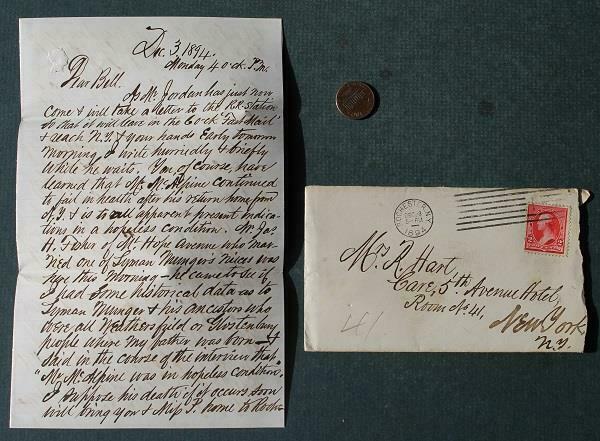 Dec. 3, 1894.
Monday 4 o'ck. P.m.
Dear Bell.
As Mr Jordan has just now
come & will take a letter to the R.R. station
so that it will leave in the 6 o'ck "Fast Mail"
& reach N.Y. & your hands Early tomorrow
morning, I write hurriedly & briefly
while he waits. You, of course, have
learned that Mr McAlpine continued
to fail in health after his return home from
N.Y. & is to all apparent present Indica-
tions in a hopeless condition. Mr. Jas.
H. of Mt Hope Avenue who mar-
ried one of Lyman Munger's nieces was
here this morning — he came to see if
I had some historical data as to
Lyman Munger & his ancestors who
were all Wethersfield or Glostenbury
people where my father was born — &
said in the course of the interview that
"Mr. McAlpine was in hopeless condition"
I suppose his death, if it occurs soon
will bring you & Miss F. home to Roch-
ROCHESTER, N.Y.
DEC 3
1894
Mrs. R. Hart,
Care, 5th Avenue Hotel,
Room No 41.
New York
N.Y.
41